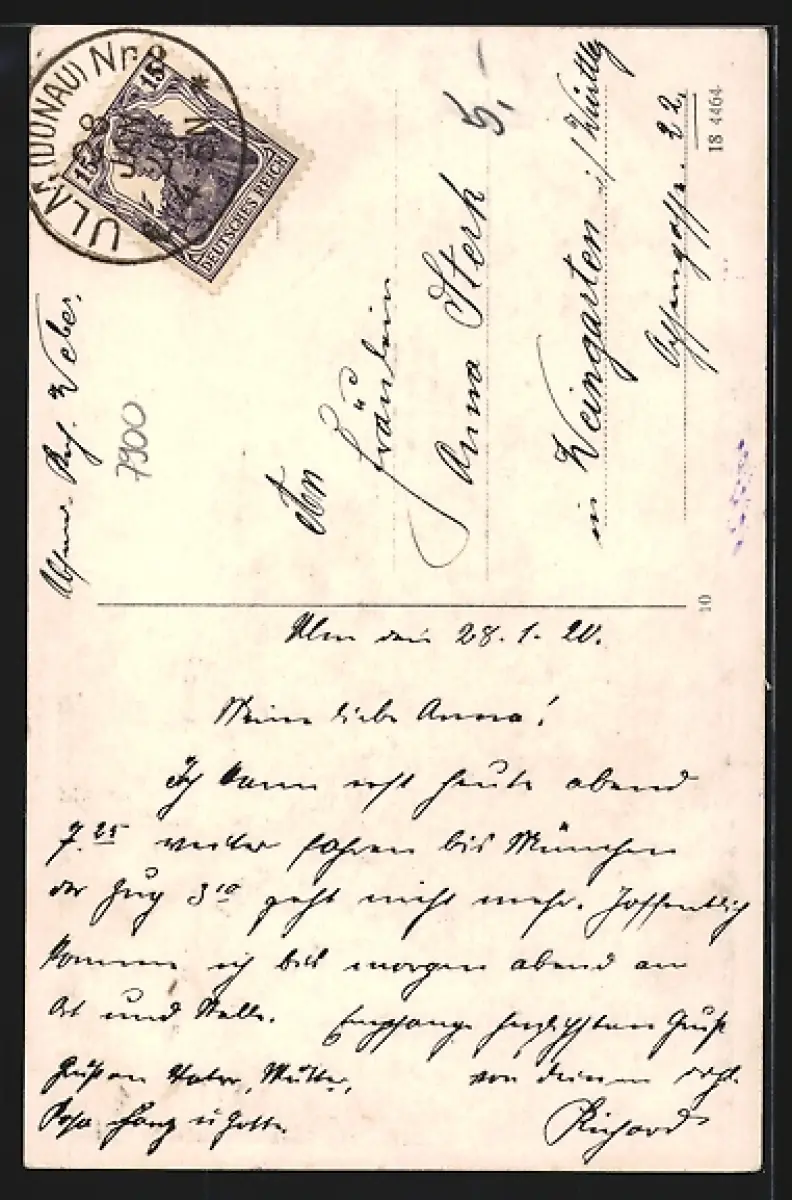 ULM (DONAU) Nr
28 JAN 20
4-5N
15 15
DEUTSCHES REICH
Weber.
7900
An
Fräulein
Anna Sterk
5,-
in Weingarten
22.
18 4464
10
Ulm den 28.1.20.
Meine liebe Anna!
Ich kann erst heute abend
7.25 weiter fahren bis München
der Zug 3 10 geht nicht mehr. Hoffentlich
komme ich bis morgen abend an
Ort und Stelle. Empfange herzlichsten Gruß
Gruß an Vater, Mutter, von deinem
Rosa
Richard